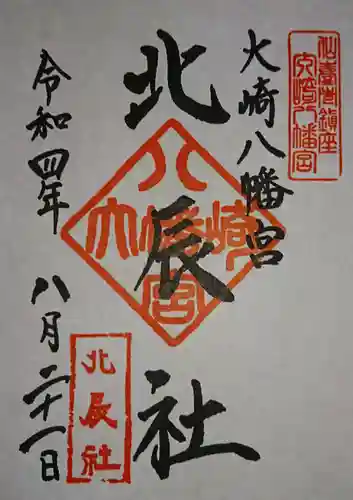 仙臺藩鎮座
大崎八幡宮
大崎八幡宮
北辰社
八
大崎
幡
宮
北辰社
令和四年
八月二十一日